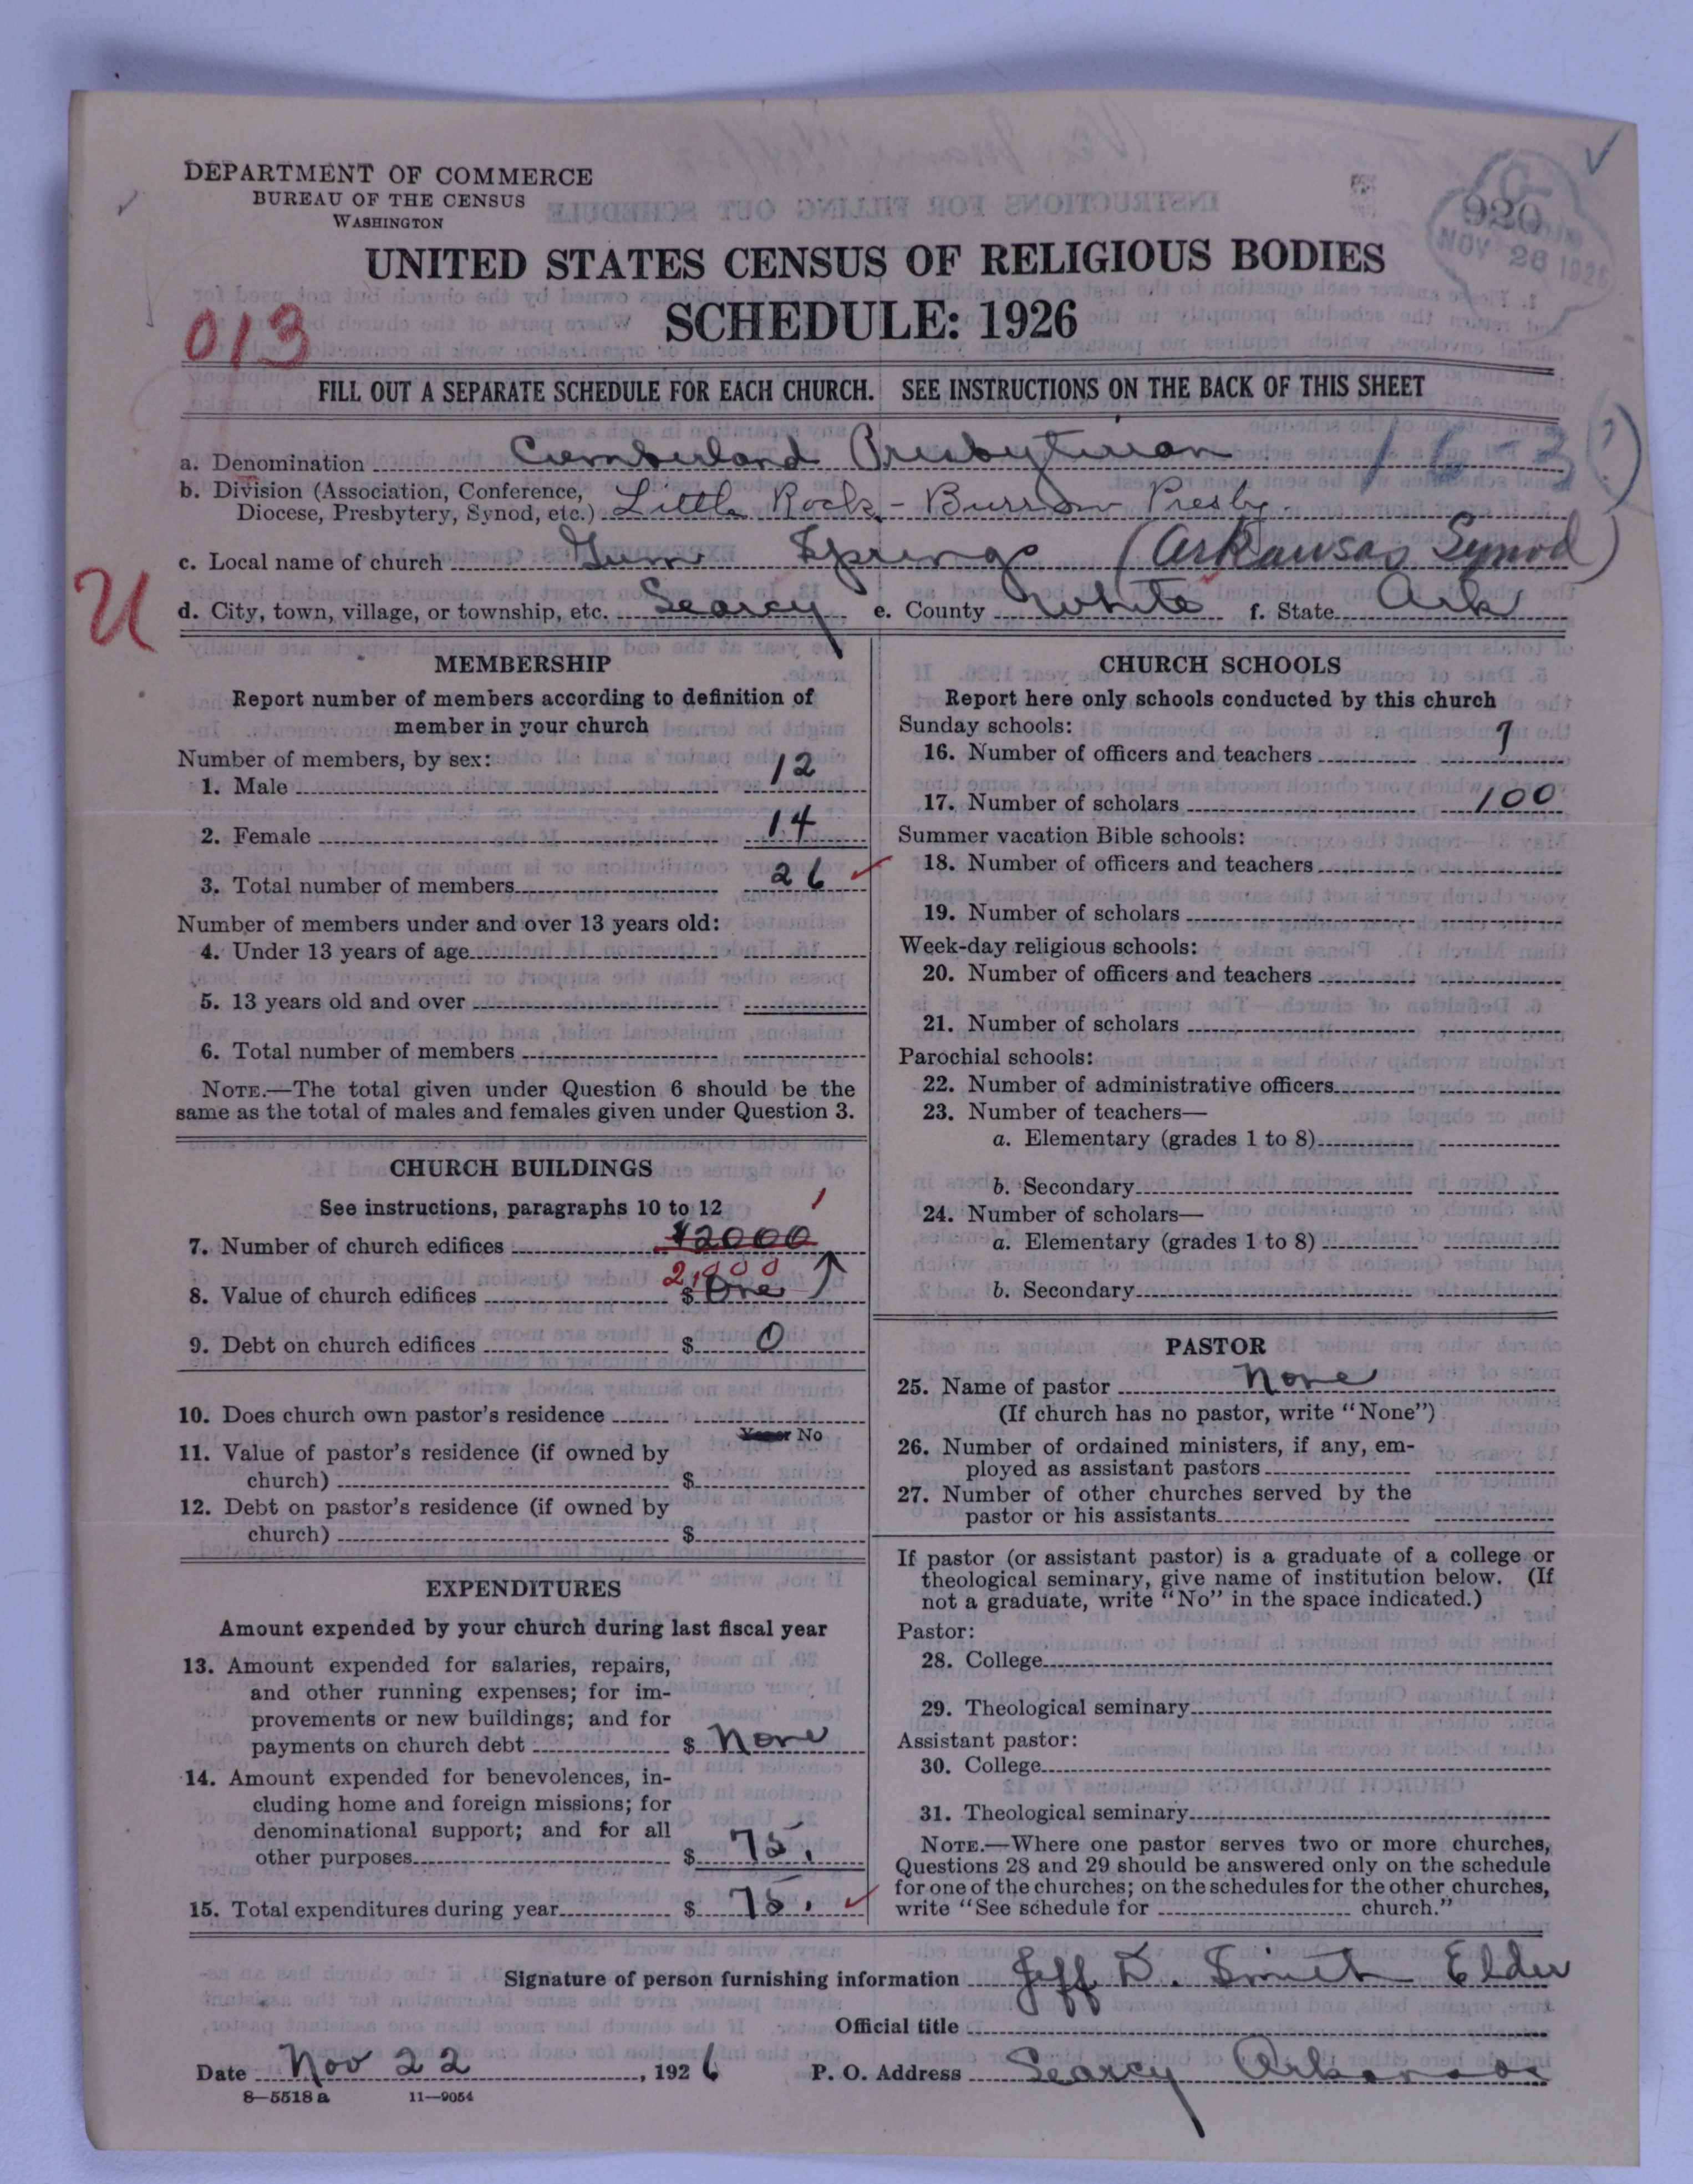 DEPARTMENT OF COMMERCE
BUREAU OF THE CENSUS
WASHINGTON
920
NOV 26 1926
UNITED STATES CENSUS OF RELIGIOUS BODIES
SCHEDULE: 1926
013
FILL OUT A SEPARATE SCHEDULE FOR EACH CHURCH. SEE INSTRUCTIONS ON THE BACK OF THIS SHEET
a. Denomination Cumberland Presbyterian 16-3 (?)
b. Division (Association, Conference,
Diocese, Presbytery, Synod, etc.) Little Rock - Burrow Presby.
c. Local name of church Gum Springs (Arkansas Synod)
U
d. City, town, village, or township, etc. Searcy e. County White f. State Ark
MEMBERSHIP
Report number of members according to definition of
member in your church
Number of members, by sex:
1. Male 12
2. Female 14
3. Total number of members 26
Number of members under and over 13 years old:
4. Under 13 years of age
5. 13 years old and over
6. Total number of members
NOTE.—The total given under Question 6 should be the
same as the total of males and females given under Question 3.
CHURCH BUILDINGS
See instructions, paragraphs 10 to 12
1
7. Number of church edifices $2000
2,000
8. Value of church edifices $ One
9. Debt on church edifices $ 0
10. Does church own pastor's residence
Yes or No
11. Value of pastor's residence (if owned by
church) $
12. Debt on pastor's residence (if owned by
church) $
EXPENDITURES
Amount expended by your church during last fiscal year
13. Amount expended for salaries, repairs,
and other running expenses; for im-
provements or new buildings; and for
payments on church debt $ None
14. Amount expended for benevolences, in-
cluding home and foreign missions; for
denominational support; and for all
other purposes $ 75.
15. Total expenditures during year $ 75.
CHURCH SCHOOLS
Report here only schools conducted by this church
Sunday schools:
16. Number of officers and teachers 7
17. Number of scholars 100
Summer vacation Bible schools:
18. Number of officers and teachers
19. Number of scholars
Week-day religious schools:
20. Number of officers and teachers
21. Number of scholars
Parochial schools:
22. Number of administrative officers
23. Number of teachers—
a. Elementary (grades 1 to 8)
b. Secondary
24. Number of scholars—
a. Elementary (grades 1 to 8)
b. Secondary
PASTOR
25. Name of pastor None
(If church has no pastor, write "None")
26. Number of ordained ministers, if any, em-
ployed as assistant pastors
27. Number of other churches served by the
pastor or his assistants
If pastor (or assistant pastor) is a graduate of a college or
theological seminary, give name of institution below. (If
not a graduate, write "No" in the space indicated.)
Pastor:
28. College
29. Theological seminary
Assistant pastor:
30. College
31. Theological seminary
NOTE.—Where one pastor serves two or more churches,
Questions 28 and 29 should be answered only on the schedule
for one of the churches; on the schedules for the other churches,
write "See schedule for church."
Signature of person furnishing information Jeff D. Smith Elder
Official title
Date Nov 22, 1926 P. O. Address Searcy Arkansas
8—5518 a 11—9054